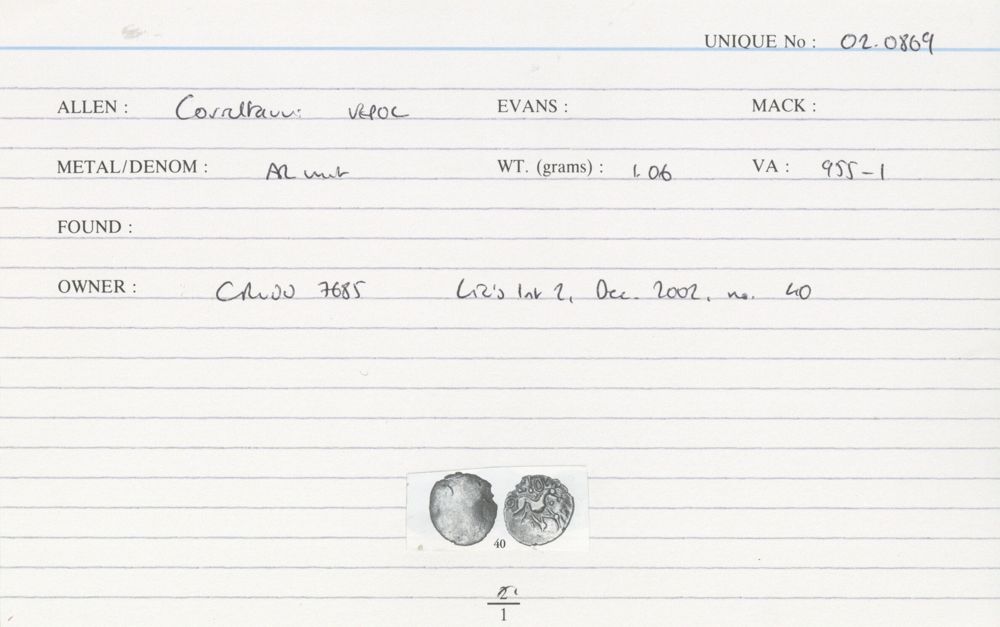 UNIQUE No : 02.0869
ALLEN : Corieltauvi VEPOC EVANS : MACK :
METAL/DENOM : AR unit WT. (grams) : 1.06 VA : 955-1
FOUND :
OWNER : 7685 Liz's list 2, Dec. 2002, no. 40
40
2
1